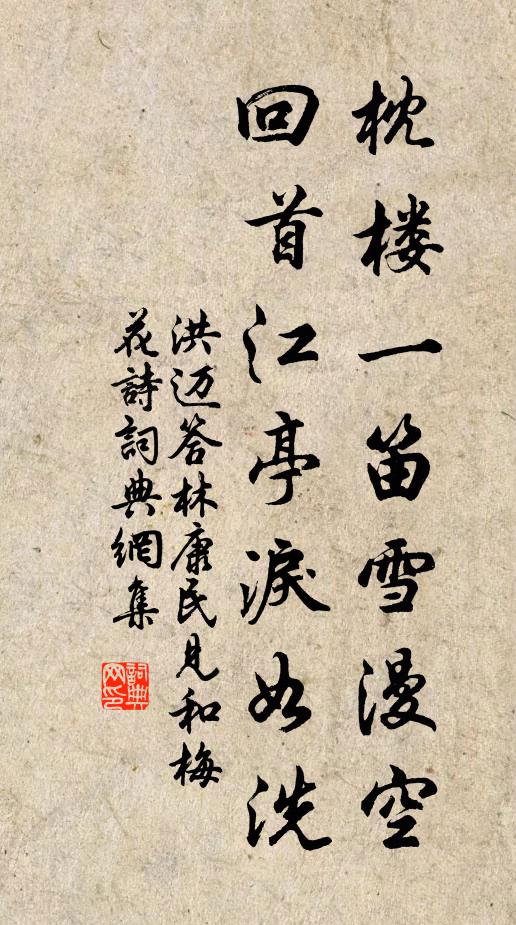 枕楼一笛雪漫空
回首江亭淚如洗
洪迈答林康民見和梅
花詩詞典網集
詞典
网印